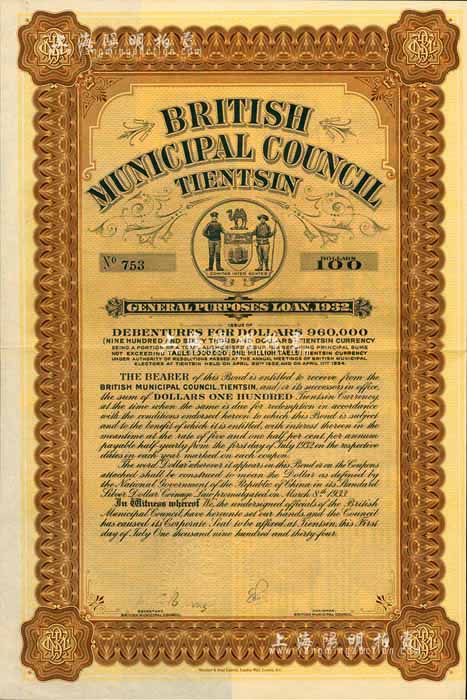 上海陽明拍賣
BRITISH
MUNICIPAL COUNCIL
TIENTSIN
DOLLARS
No 753
100
GENERAL PURPOSES LOAN, 1932
ISSUE OF
DEBENTURES FOR DOLLARS 960,000
(NINE HUNDRED AND SIXTY THOUSAND DOLLARS) TIENTSIN CURRENCY
BEING A PORTION OF A
PRINCIPAL SUMS
NOT EXCEEDING TAELS 1,000,000 (ONE MILLION TAELS) TIENTSIN CURRENCY
UNDER AUTHORITY OF RESOLUTIONS PASSED AT THE ANNUAL MEETINGS OF BRITISH MUNICIPAL
ELECTORS AT TIENTSIN HELD ON APRIL 1932, AND ON APRIL 11TH 1934.
THE BEARER of this Bond is entitled to receive from the
BRITISH MUNICIPAL COUNCIL, TIENTSIN, and/or its successors in office,
the sum of DOLLARS ONE HUNDRED Tientsin Currency
at the time when the same is due for redemption in accordance
with the conditions endorsed hereon to which this Bond is subject
and to the benefit of which it is entitled, with interest thereon in the
meantime at the rate of five and one half per cent. per annum
payable half-yearly from the first day of July 1932 on the respective
dates in each year marked on each coupon.
The word Dollar wherever it appears on this Bond or on the Coupons
attached shall be construed to mean the Dollar as defined by
the National Government of the Republic of China in its Standard
Silver Dollar Coinage Law promulgated on March 8th 1933.
In Witness whereof We, the undersigned officials of the British
Municipal Council, have hereunto set our hands, and the Council
has caused its Corporate Seal to be affixed, at Tientsin, this First
day of July One thousand nine hundred and thirty-four.
SECRETARY,
BRITISH MUNICIPAL COUNCIL
CHAIRMAN,
BRITISH MUNICIPAL COUNCIL
上海陽明拍賣